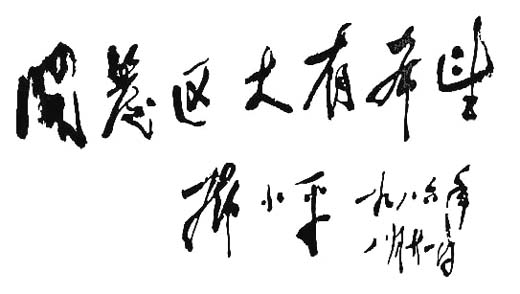 開發区大有希望
鄧小平
一九八六年
八月廿一日